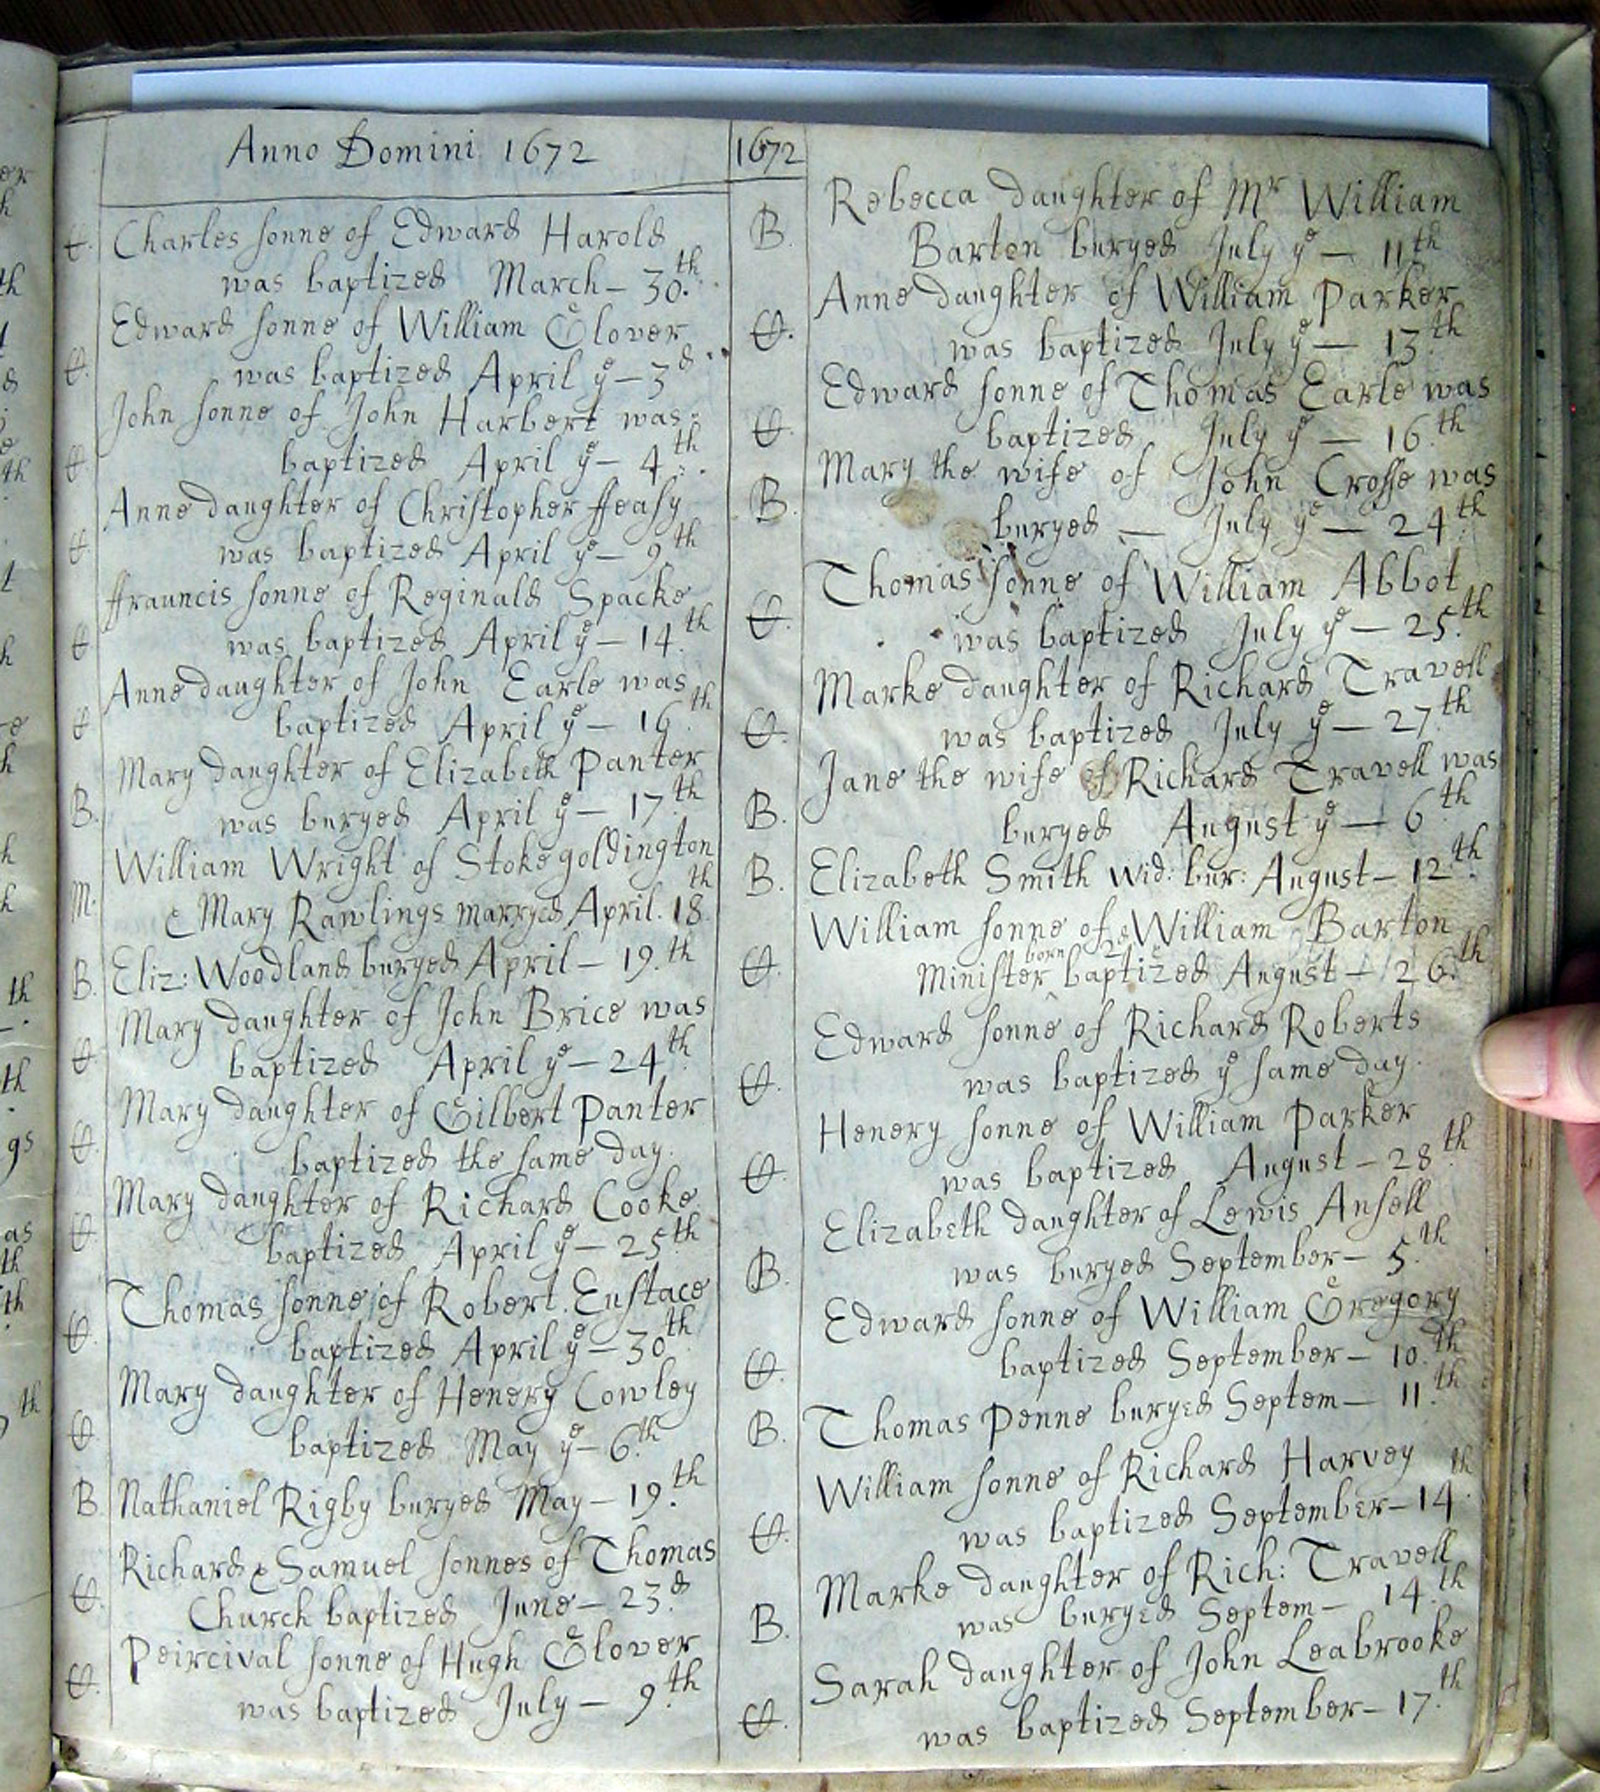 Anno Domini 1672
C. Charles sonne of Edward Harold
was baptized March – 30.th
Edward sonne of William Glover
C. was baptized April ye – 3d
John sonne of John Harbert was
C baptized April ye – 4.th
Anne daughter of Christopher ffeasy
C was baptized April ye – 9th
ffrauncis sonne of Reginald Spacke
C was baptized April ye – 14.th
Anne daughter of John Earle was
C baptized April ye – 16th
Mary daughter of Elizabeth Panter
B. was buryed April ye – 17th
William Wright of Stokegoldington
M. & Mary Rawlings marryed April. 18.th
B. Eliz: Woodland buryed April – 19.th
Mary daughter of John Brice was
C. baptized April ye – 24th
Mary daughter of Gilbert Panter
C. baptized the same day.
Mary daughter of Richard Cooke
C. baptized April ye – 25th
Thomas sonne of Robert Eustace
C. baptized April ye – 30th
Mary daughter of Henery Cowley
C. baptized May ye – 6.th
B. Nathaniel Rigby buryed May – 19.th
Richard & Samuel sonnes of Thomas
C. Church baptized June – 23.d
Peircival sonne of Hugh Glover
C. was baptized July – 9.th
1672
Rebecca daughter of Mr William
B. Barton buryed July ye – 11th
Anne daughter of William Parker
C. was baptized July ye – 13.th
Edward sonne of Thomas Earle was
C. baptized July ye – 16.th
Mary the wife of John Crosse was
B. buryed – July ye – 24th
Thomas sonne of William Abbot
C. was baptized July ye – 25.th
Marke daughter of Richard Travell
C. was baptized July ye – 27th
Jane the wife of Richard Travell was
B. buryed August ye – 6th
B. Elizabeth Smith wid: bur: August – 12th
William sonne of William Barton
born 2d
C. Minister baptized August – 26.th
Edward sonne of Richard Roberts
C. was baptized ye same day.
Henery sonne of William Parker
C. was baptized August – 28th
Elizabeth daughter of Lewis Ansell
B. was buryed September – 5.th
Edward sonne of William Gregory
C. baptized September – 10.th
B. Thomas Penne buryed Septem – 11.th
William sonne of Richard Harvey
C. was baptized September – 14.th
Marke daughter of Rich: Travell
B. was buryed Septem – 14.th
Sarah daughter of John Leabrooke
C. was baptized September – 17.th